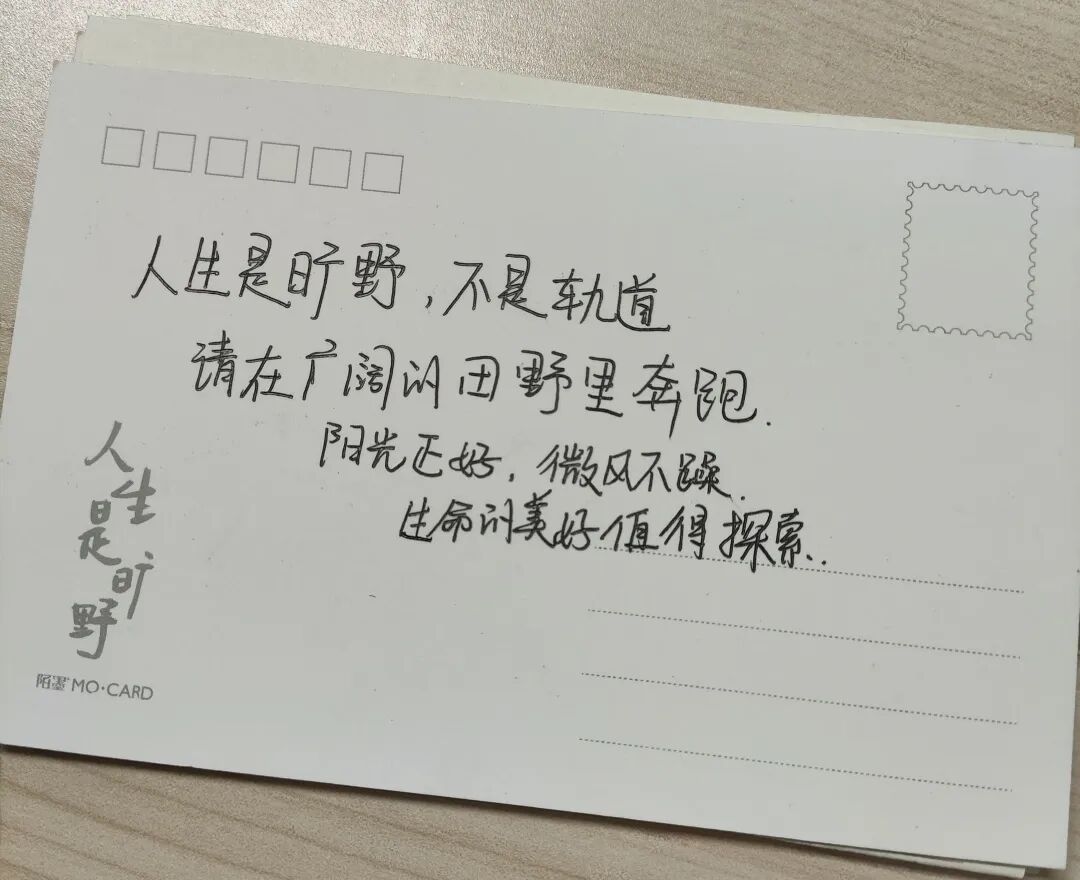 人生是旷野,不是轨道
请在广阔的田野里奔跑.
阳光正好,微风不躁.
生命的美好值得探索..
人生是旷野
陌墨 MO·CARD